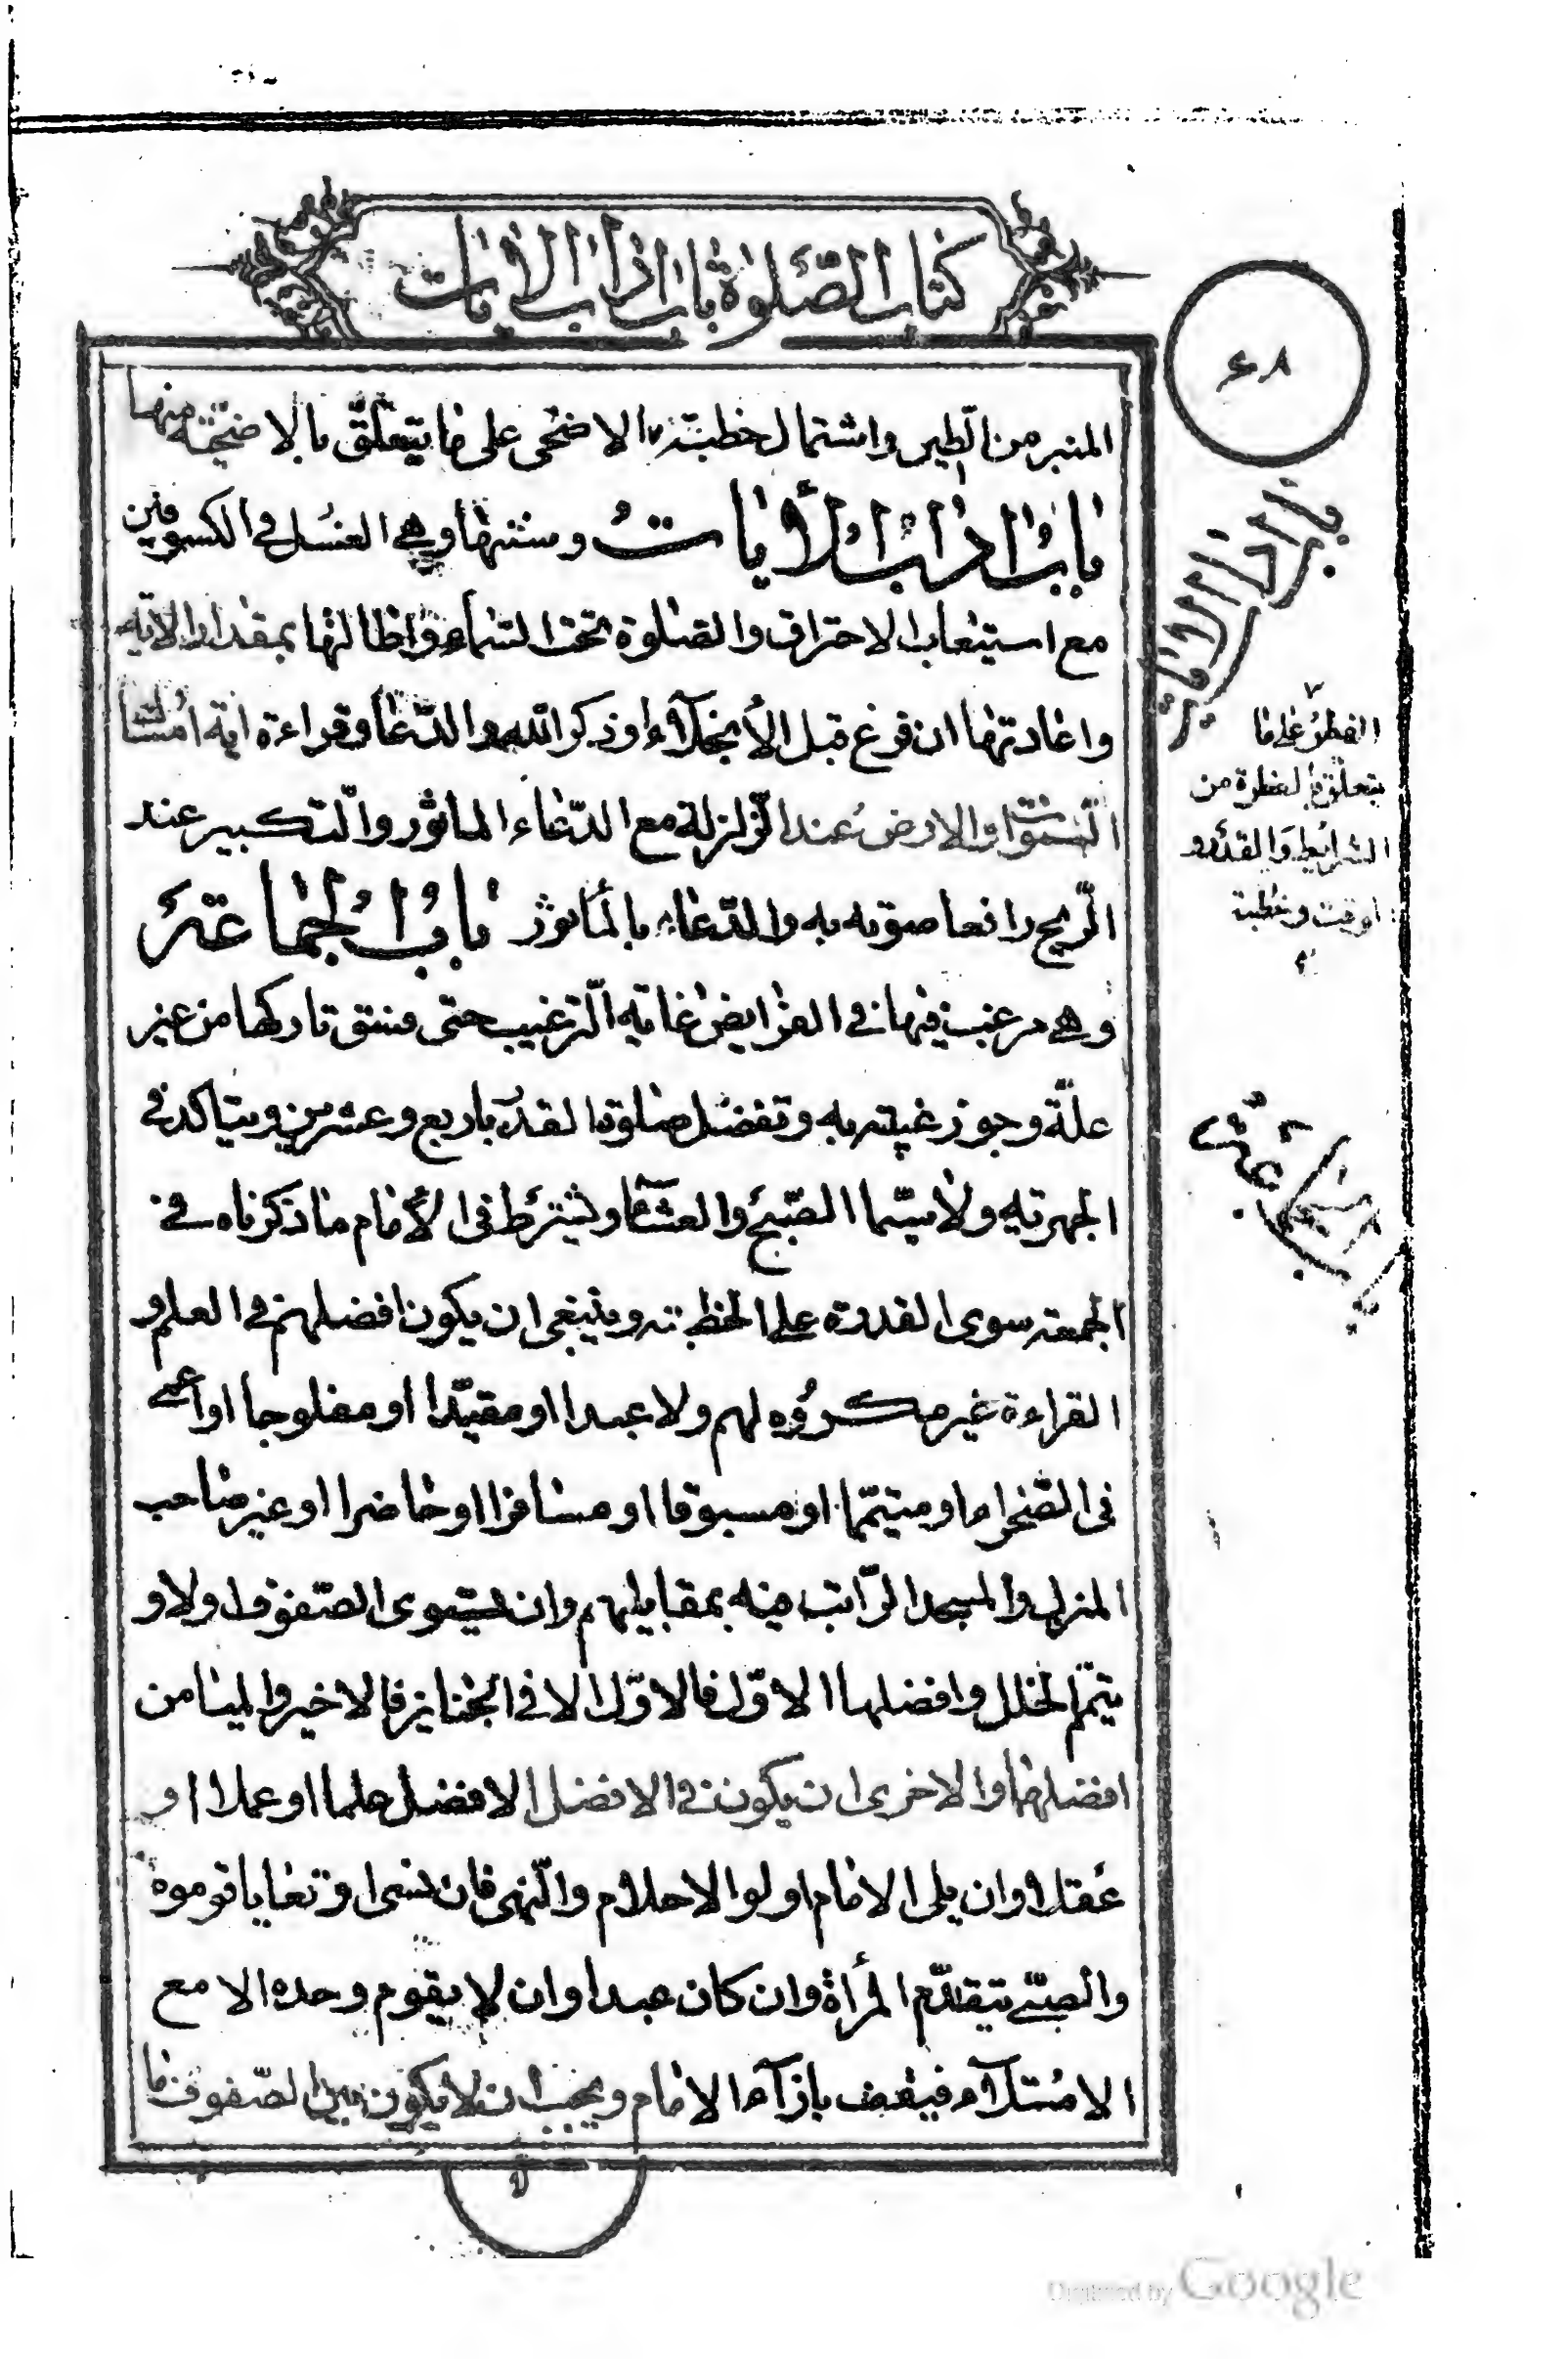 كتاب الصلوة باب اداب الايات
٨ع
المنبر من الطين واشتمال خطبتى الاضحى على ما يتعلق بالاضحية منها
باب اداب الأيات وسننها وهى الغسل فى الكسوفين
مع استيعاب الاحتراق والصلوة تحت السماء واطالتها بمقدار الاية
واعادتها ان فرغ قبل الأنجلاء او ذكر الله والدعاء وقراءة اية امساك
السموات والارض عند الزلزلة مع الدعاء المأثور والتكبير عند
الريح رافعا صوته به والدعاء بالمأثور باب الجماعة
وهى مرغب فيها فى الفرايض غاية الترغيب حتى فسق تاركها من غير
علة وجوز غيبته به وتفضل صلوة الفذ باربع وعشرين ويتاكد فى
الجهرية ولا سيما الصبح والعشاء ويشترط فى الأمام ما ذكرناه فى
الجمعة سوى القدرة على الخطبة وينبغى ان يكون افضلهم فى العلم و
القراءة غير مكروه لهم ولا عبدا او مقيدا او مفلوجا او اعمى
فى الصحراء او متيمما او مسبوقا او مسافرا او حاضرا او غير صاحب
المنزل والمسجد الراتب فيه بمقابليهم وان يستوى الصفوف اولا و
يتم الخلل وافضلها الاول فالاول الا فى الجنايز فالاخير والميامن
افضلها والاحرى ان يكون فى الافضل الافضل علما او عملا او
عقلا وان يلى الامام اولوا الاحلام والنهى فان نسى او تعايا قوموه
والصبى يتقدم المرأة وان كان عبدا وان لا يقوم وحده الا مع
الامتلاء فيقف بازاء الامام ويجب ان لا يكون بين الصفوف ما
باب اداب الايات
الفطر على ما
يتعلق بالفطرة من
الشرايط والقدر و
الوقت وخطبة
باب الجماعة
Digitized by Google